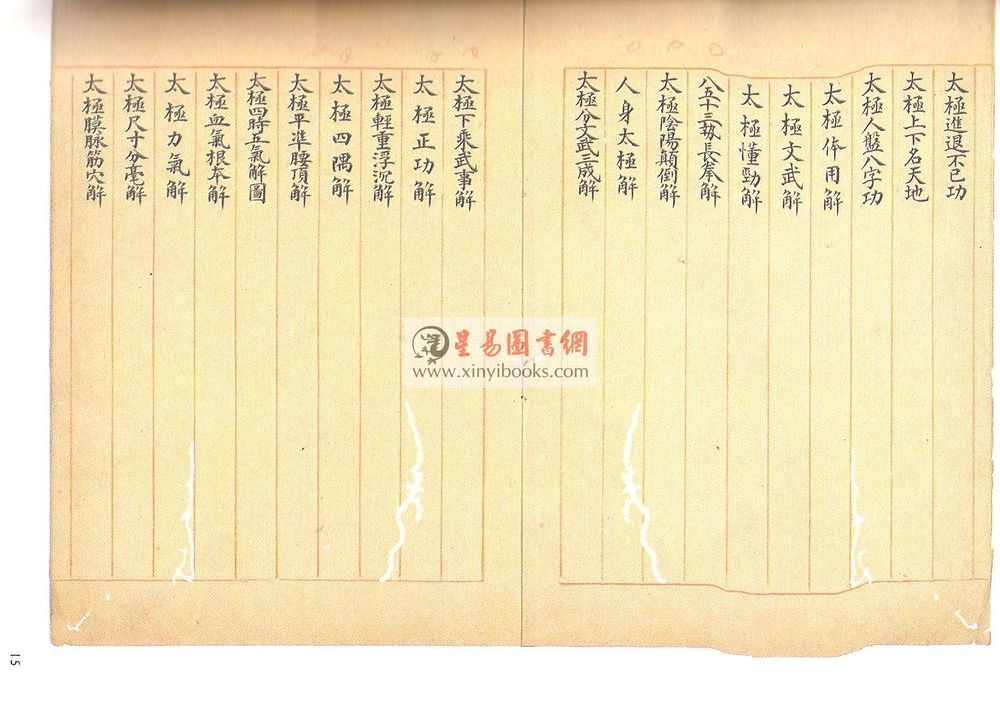 太極進退不已功
太極上下名天地
太極人盤八字功
太極体用解
太極文武解
太極懂勁解
八五十三勢長拳解
太極陰陽顛倒解
人身太極解
太極分文武三成解
太極下乘武事解
太極正功解
太極輕重浮沉解
太極四隅解
太極平準腰頂解
太極四時五氣解圖
太極血氣根本解
太極力氣解
太極尺寸分毫解
太極膜脉筋穴解
星易圖書網
www.xinyibooks.com
15